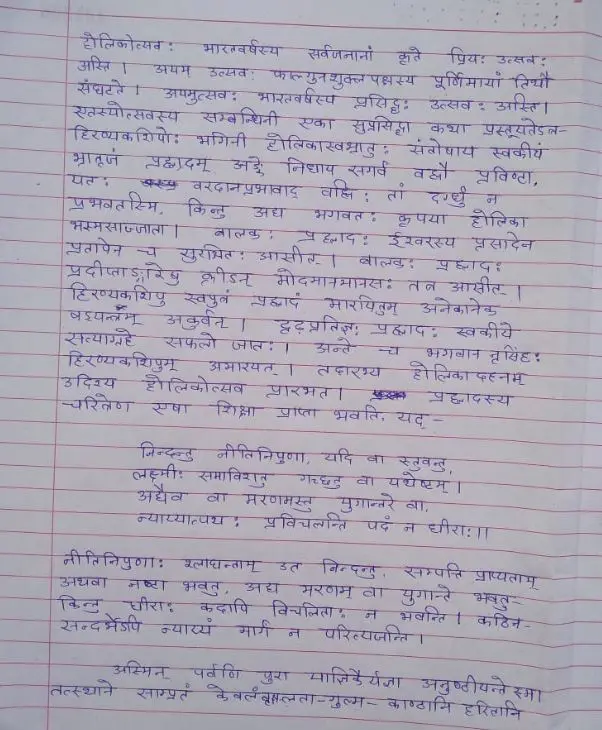 होलिकोत्सव: भारतवर्षस्य सर्वजनानां कृते प्रिय: उत्सव:
अस्ति। अयम् उत्सव: फाल्गुनशुक्लपक्षस्य पूर्णिमायां तिथौ
संघटते। अयमुत्सव: भारतवर्षस्य प्रसिद्ध: उत्सव: अस्ति।
एतस्योत्सवस्य सम्बन्धिनी एका सुप्रसिद्धा कथा प्रस्तूयतेऽत्र-
हिरण्यकशिपो: भगिनी होलिकास्वभ्रातु: संतोषाय स्वकीयं
भ्रातृजं प्रह्लादम् अङ्के निधाय सगर्वं वह्नौ प्रविष्टा,
यत: वरदानप्रभावाद् वह्नि: तां दग्धुं न
प्रभवतिस्म, किन्तु अद्य भगवत: कृपया होलिका
भस्मसाज्जाता। बालक: प्रह्लाद: ईश्वरस्य प्रसादेन
प्रतापेन च सुरक्षित: आसीत्। बालक: प्रह्लाद:
प्रदीप्ताङ्गारेषु क्रीडन् मोदमानमानस: तत्र आसीत्।
हिरण्यकशिपु स्वपुत्रं प्रह्लादं मारयितुम् अनेकानेक
षड्यन्त्रम् अकुर्वन्। दृढ़प्रतिज्ञ: प्रह्लाद: स्वकीये
सत्याग्रहे सफलो जात:। अन्ते च भगवान नृसिंह:
हिरण्यकशिपुम् अमारयत्। तदारभ्य होलिकादहनम्
उदिश्य होलिकोत्सव प्रारभत। प्रह्लादस्य
चरित्रेण एषा शिक्षा प्राप्ता भवति, यद्-
निन्दन्तु नीतिनिपुणा, यदि वा स्तुवन्तु,
लक्ष्मी: समाविशतु गच्छतु वा यथेष्टम्।
अद्यैव वा मरणमस्तु युगान्तरे वा,
न्याय्यात्पथ: प्रविचलन्ति पदं न धीरा:॥
नीतिनिपुणा: श्लाघन्ताम् उत निन्दन्तु, सम्पत्ति प्राप्यताम्
अथवा नष्टा भवतु, अद्य मरणम् वा युगान्ते भवतु-
किन्तु धीरा: कदापि विचलिता: न भवन्ति। कठिन-
सन्दर्भेऽपि न्याय्यं मार्गं न परित्यजन्ति।
अस्मिन् पर्वणि पुरा याज्ञिकैर्यज्ञा अनुष्ठीयन्ते स्म।
तत्स्थाने साम्प्रतं केवलंवृक्षलता-गुल्म-काष्ठानि हरितानि